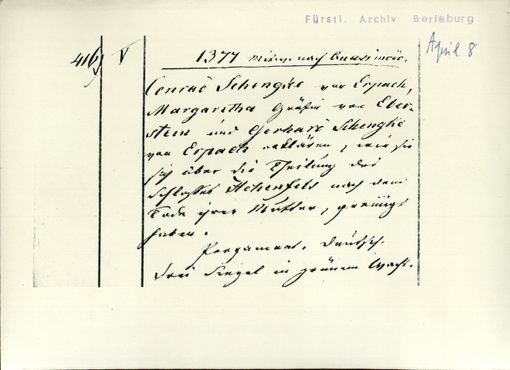 Fürstl. Archiv Berleburg
April 8
416 V
1377 Mittw. nach Quasimodo.
Conrad Schengke von Erpach,
Margaretha Gräfin von Eber-
stein und Gerhard Schengke
von Erpach erklären, wie sie
sich über die Theilung des
Schlosses Hohenfels nach dem
Tode ihrer Mutter, geeinigt
haben.
Pergament. Deutsch.
Drei Siegel in grünem Wachs.